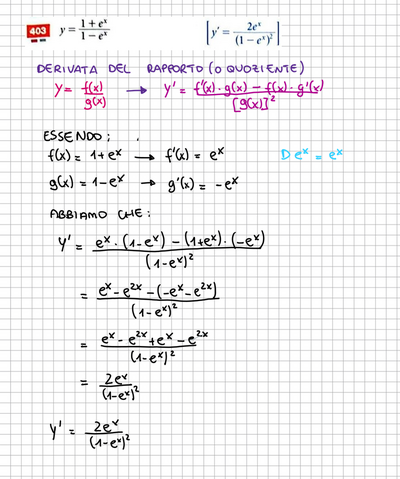 403 y = (1 + eˣ)/(1 − eˣ) [y' = 2eˣ/(1 − eˣ)²]
DERIVATA DEL RAPPORTO (O QUOZIENTE)
y = f(x)/g(x) → y' = (f'(x)·g(x) − f(x)·g'(x))/[g(x)]²
ESSENDO:
f(x) = 1+eˣ → f'(x) = eˣ D eˣ = eˣ
g(x) = 1−eˣ → g'(x) = −eˣ
ABBIAMO CHE:
y' = (eˣ·(1−eˣ) − (1+eˣ)·(−eˣ))/(1−eˣ)²
= (eˣ − e²ˣ − (−eˣ − e²ˣ))/(1−eˣ)²
= (eˣ − e²ˣ + eˣ − e²ˣ)/(1−eˣ)²
= 2eˣ/(1−eˣ)²
y' = 2eˣ/(1−eˣ)²